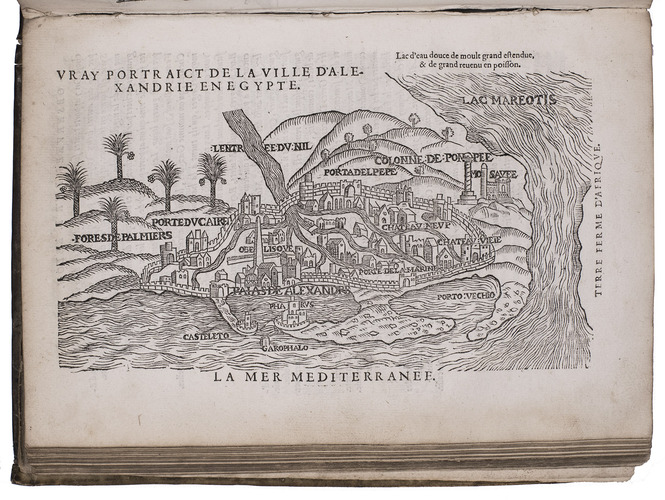 VRAY PORTRAICT DE LA VILLE D'ALE-
XANDRIE EN EGYPTE.
Lac d'eau douce de moult grand eſtendue,
& de grand reuenu en poiſſon.
LAC MAREOTIS
LENTREE DV NIL
COLONNE DE POMPEE
PORTA DEL PEPE
MOSQVEE
TERRE FERME D'AFRIQVE.
PORTE DV CAIRE
CHATEAV NEVF
FORES DE PALMIERS
OBELISQVE
CHATEAV VIEL
PORTE DE LA MARINE
PALAS DE ALEXANDRE
PORTO VECHIO
PHARVS
CASTELETO
GAROPHALO
LA MER MEDITERRANEE.